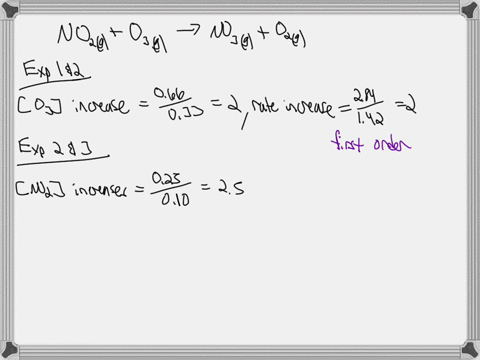 NO2(g) + O3(g) → NO3(g) + O2(g)
Exp 1&2
[O3] increase = 0.66/0.33 = 2, rate increase = 2.84/1.42 = 2
first order
Exp 2&3
[NO2] increases = 0.25/0.10 = 2.5